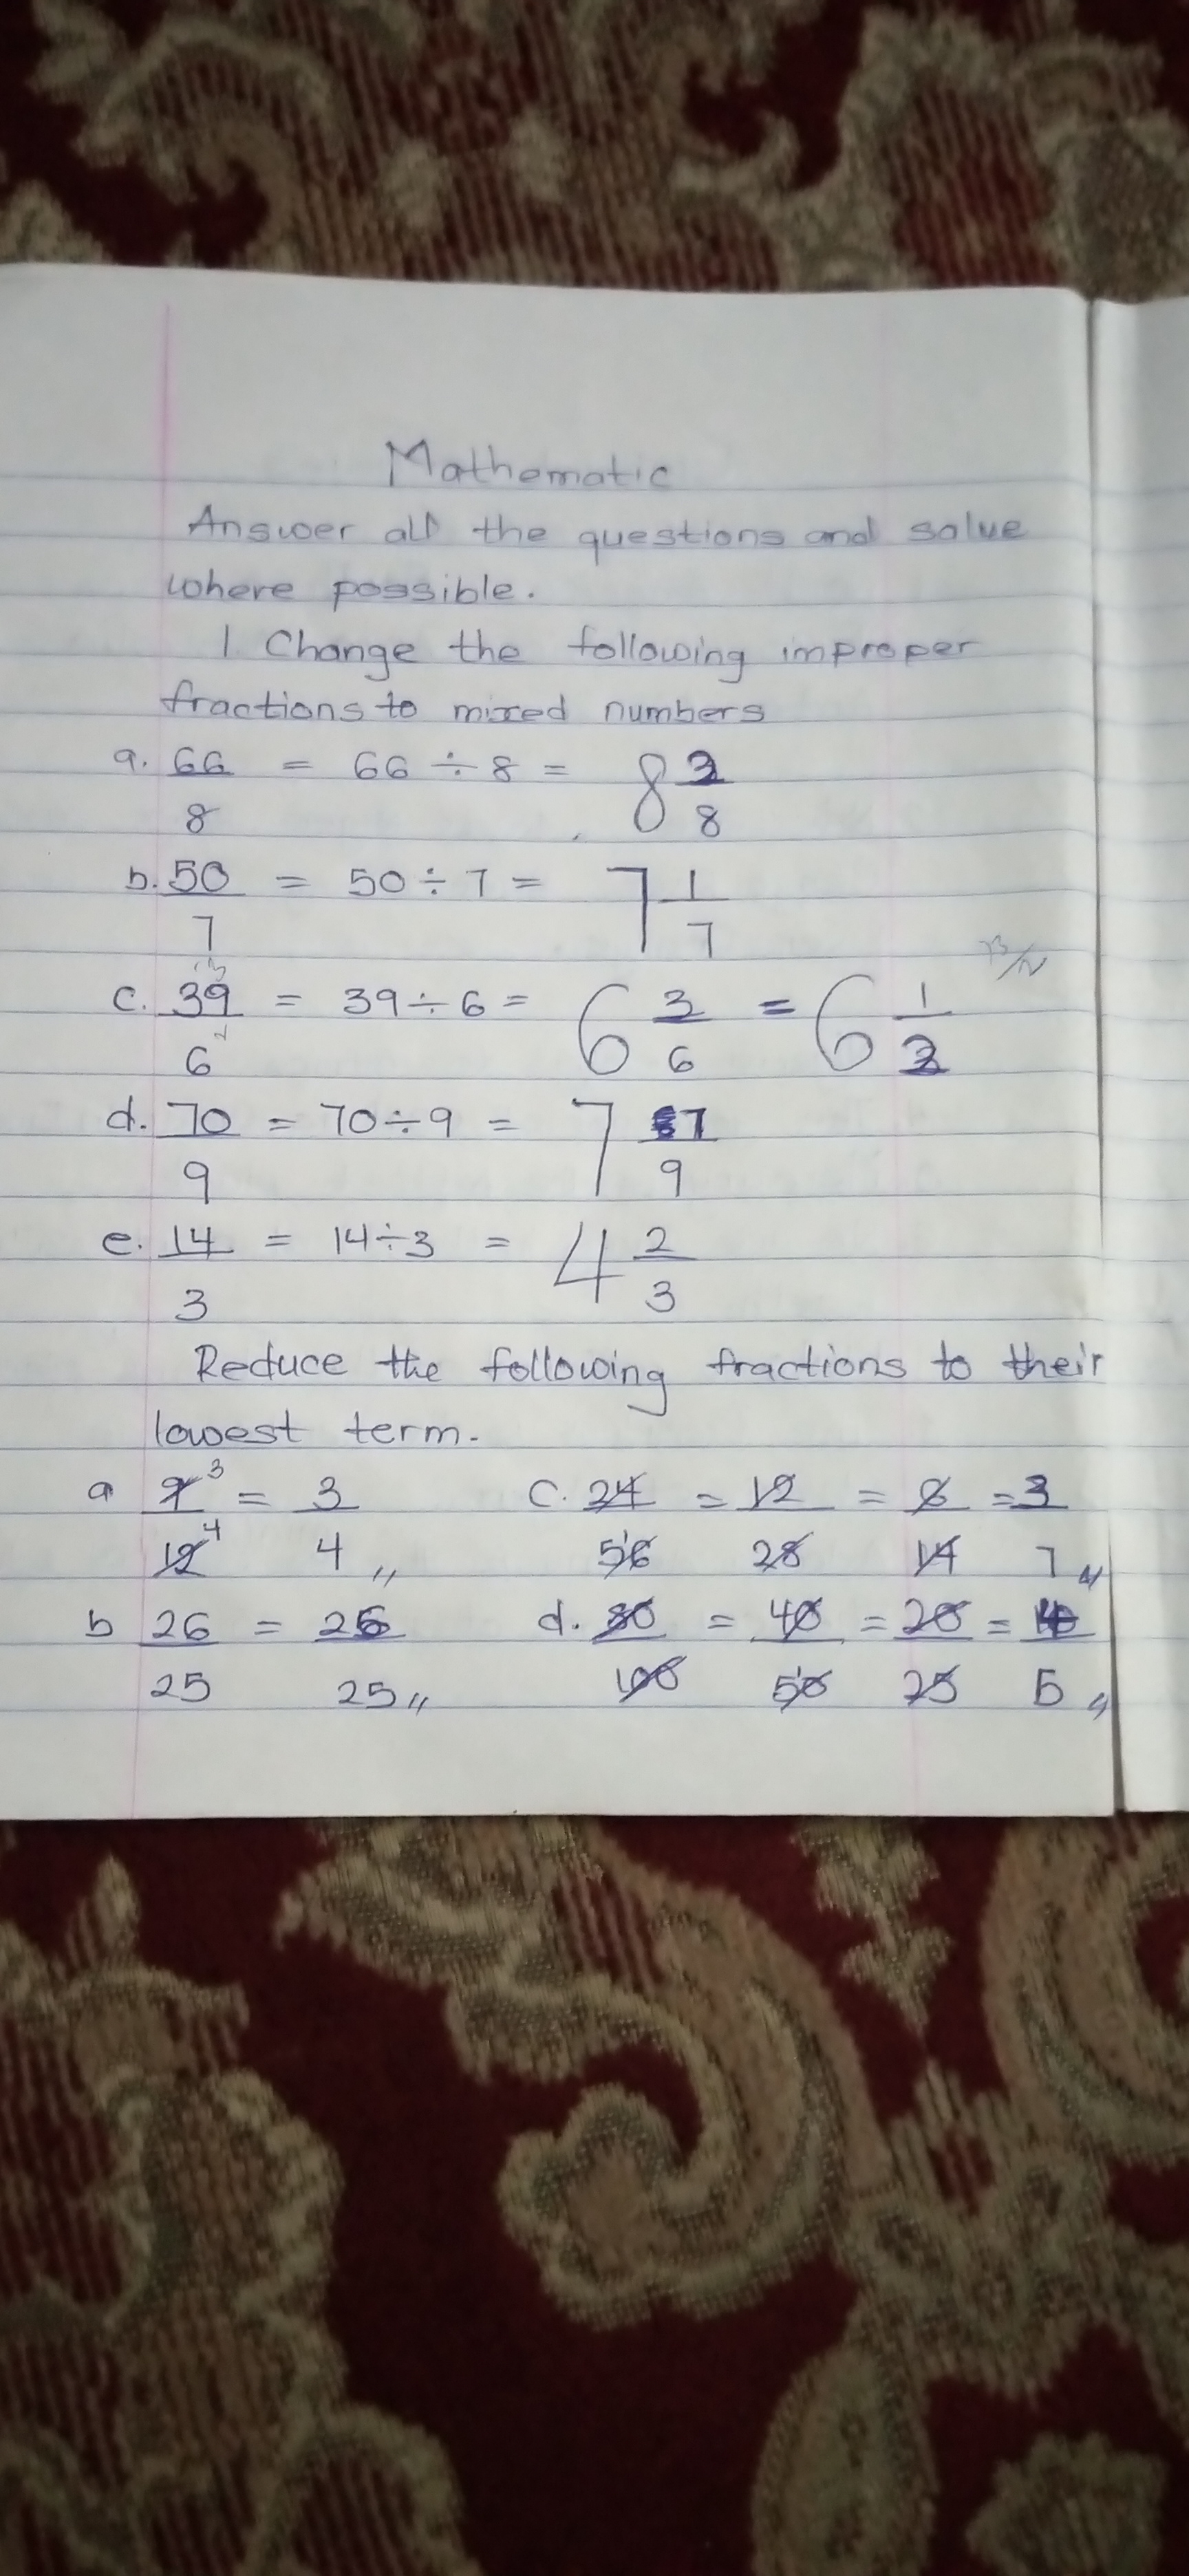 Mathematic
Answer all the questions and solve
where possible.
1 Change the following improper
fractions to mixed numbers
a. 66/8 = 66 ÷ 8 = 8 2/8
b. 50/7 = 50 ÷ 7 = 7 1/7
c. 39/6 = 39 ÷ 6 = 6 3/6 = 6 1/2
d. 70/9 = 70 ÷ 9 = 7 7/9
e. 14/3 = 14 ÷ 3 = 4 2/3
Reduce the following fractions to their
lowest term.
a 9/12 3 4 = 3/4 ,,
c. 24/56 = 12/28 = 6/14 = 3/7 ,,
b 26/25 = 26/25 ,,
d. 80/100 = 40/50 = 20/25 = 4/5 ,,